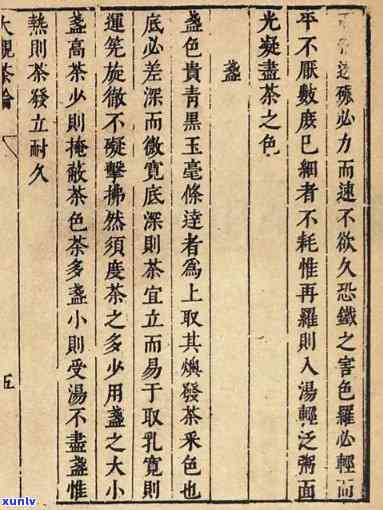 透碾必力而速不欲久恐鐵之害色羅必輕而
平不厭數庶已細者不耗惟再羅則入湯輕泛粥面
光凝盡茶之色
盞
盞色貴青黑玉毫條達者爲上取其燠發茶采色也
底必差深而微寬底深則茶宜立而易于取乳寬則
運筅旋徹不礙擊拂然須度茶之多少用盞之大小
盞高茶少則掩蔽茶色茶多盞小則受湯不盡盞惟
熱則茶發立耐久
大觀茶論
五
xunlv